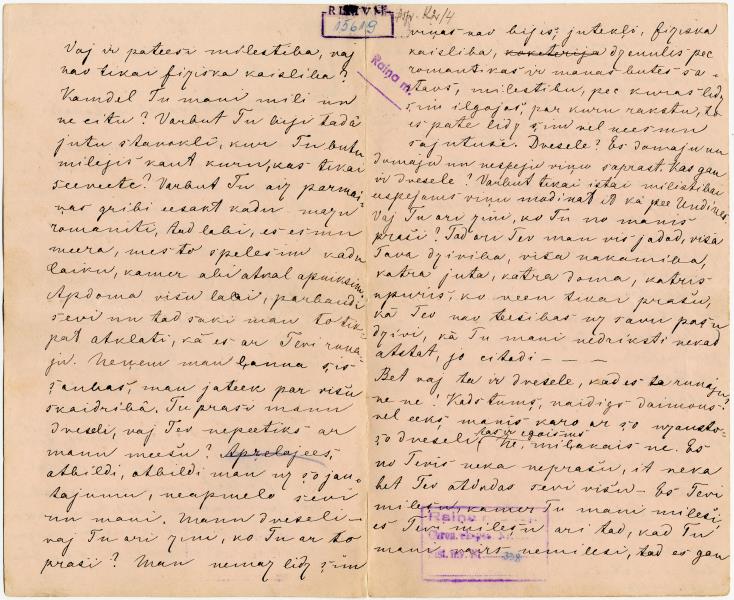 RMVM
15619
Vaj ir pateesa milestiba, vaj
nav tikai fiziska kaisliba?
Kamdel Tu mani mili un
ne citu? Varbut Tu biji tadā
jutu stavoklī, kur Tu butu
milejis kaut kuru, kas tikai
seeveete? Varbut Tu aiz parmai-
ņas gribi eesakt kadu mazu
romaniti, tad labi, es esmu
meera, mes to spelesim kadu
laiku, kamer abi atkal apniksim.
Apdoma visu labi, parbaudi
sevi un tad saki man to tik-
pat atklati, kā es ar Tevi runa-
ju. Neņem man ļauna sis
šaubas, man jateek par visu
skaidribā, Tu prasi manu
dveseli, vaj Tev nepeetiks ar
manu meesu? Apzelojees,
atbildi, atbildi man uz so jau-
tajumu, neapmelo sevi
un mani. Manu dveseli –
vaj Tu ari zini, ko Tu ar to
prasi? Man nemaz lidz sim
viņas nav bijis; jutekļi, fiziska
kaisliba, koketerija dzenulis pec
romantikas ir manas butes sa-
tavs, milestibu, pec kuras lidz
sim ilgojos, par kuru rakstu, to
es pate lidz sim vel neesmu
sajutusi. Dvesele? Es domaju un
domaju un nespeju viņu saprast. Kas gan
ir dvesele? Varbut tikai istai milestibai
eespejams viņu modinat A kā pee Undines.
Vaj Tu ari zini, ko Tu no manis
prasi? Tad ari Tev man vis jadod, visa
Tava dziviba, visa nakamiba,
katra juta, katra doma, katris
spuris, ko neen tikai prasu,
kā Tev nav teesibas uz savu pasu
dzivi, kā Tu mani nedriksti nekad
atstat, jo citadi – – –
Bet vaj ta ir dvesele, kad es ta runaju?
ne ne! Kads tums, naidigs daimons
vel eeks manis karo ar so uzausto-
so dveseli, tas ir egoisms
Ne, milakais ne. Es
no Tevis neka neprasu, it neka
bet Tev atdodas sevi visu – Es Tevi
milesu, kamer Tu mani milesi,
es Tevi milesu ari tad, kad Tu
mani vairs nemilesi, tad es gan
Raiņa m.
Raiņa